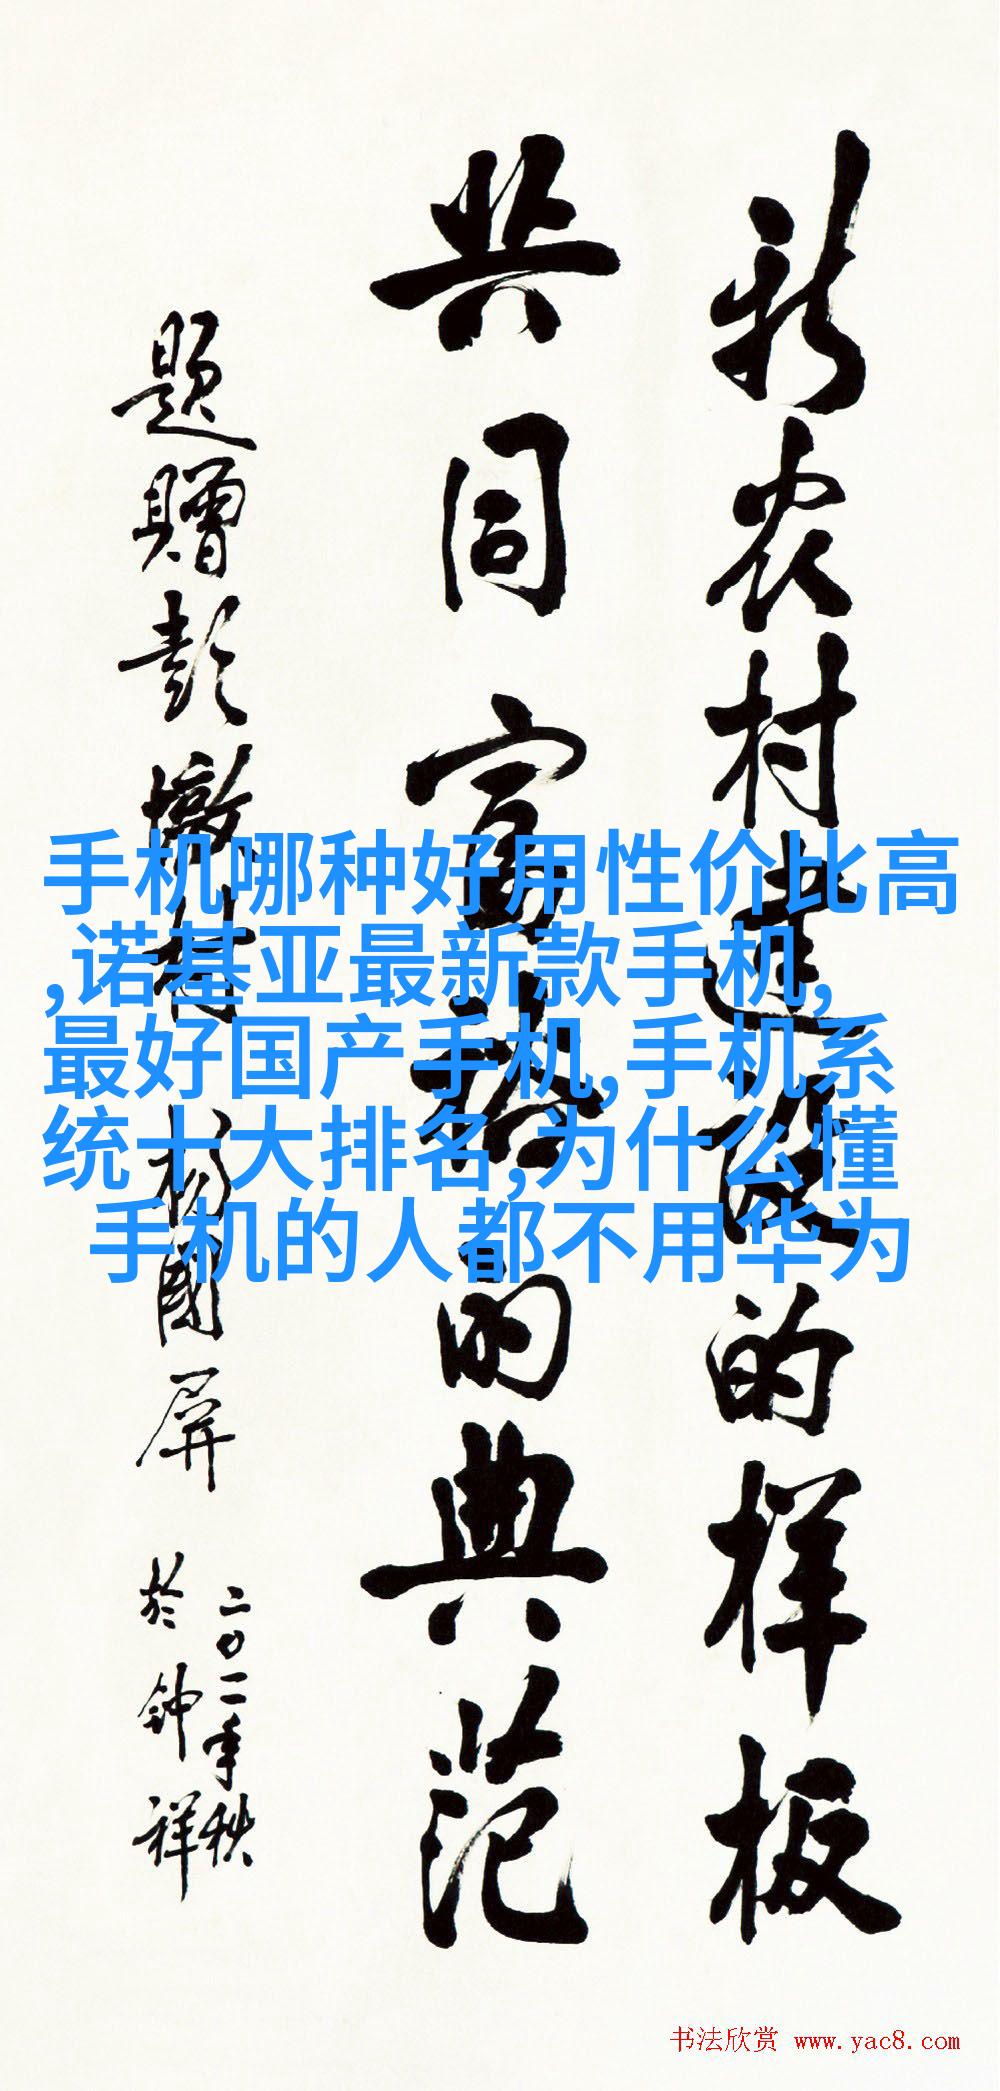 新农村建设的样板
共同富裕的典范
题赠彭墩村 杨国屏
二〇一一年秋
於钟祥
手机哪种好用性价比高
,诺基亚最新款手机,
最好国产手机,手机系
统十大排名,为什么懂
手机的人都不用华为
书法欣赏 www.yac8.com